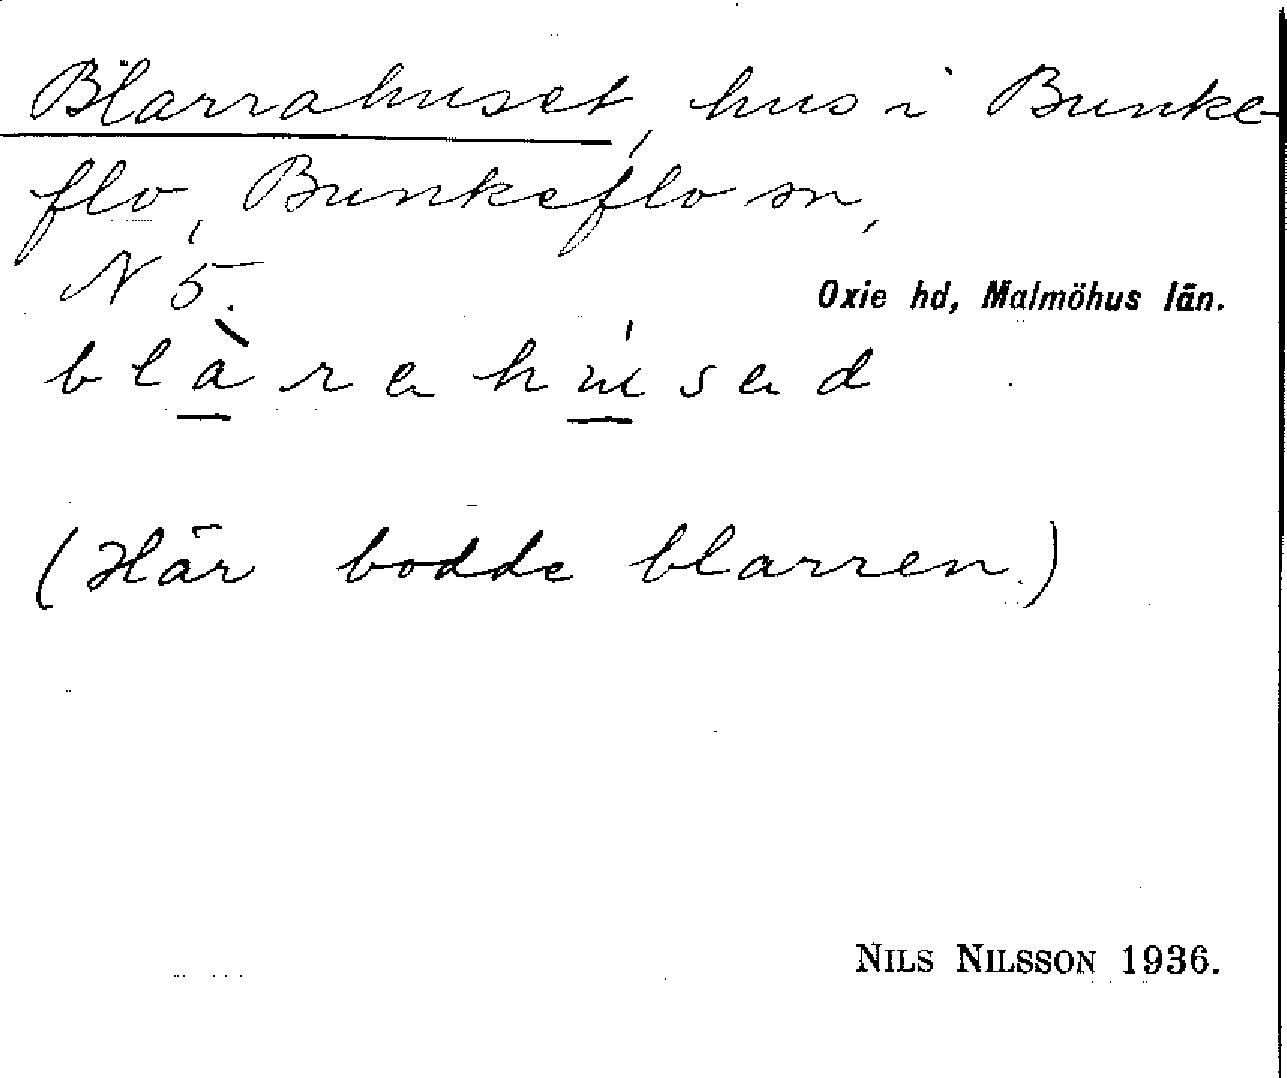 Blarrahuset, hus i Bunke-
flo, Bunkeflo sn,
N 5.
Oxie hd, Malmöhus län.
blàrahúsad
(Här bodde blarren.)
NILS NILSSON 1936.